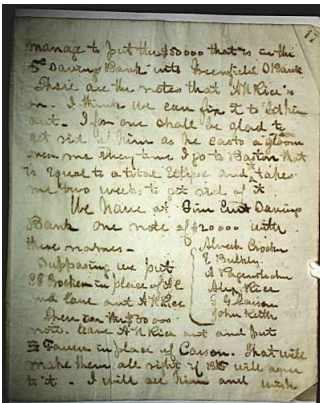 manage to put the $50000 that is in the
5c Savings Bank into Greenfield S Bank
These are the notes that A H Rice is
on. I think we can fix it to let him
out. I for one shall be glad to
get rid of him as he casts a gloom
over me every time I go to Boston that
is equal to a total Eclipse and takes
me two weeks to get rid of it.
We have at Savings
Bank one note of $20000 with
these names—
Alvah Crocker
E Bulkley
Alex Rice
John Keith
Supposing we put
in place of
and leave out A H Rice
Then on the $50000
note. leave A H Rice out and put
in place of Carson. That will
make them all right if will agree
to it. I will see him and